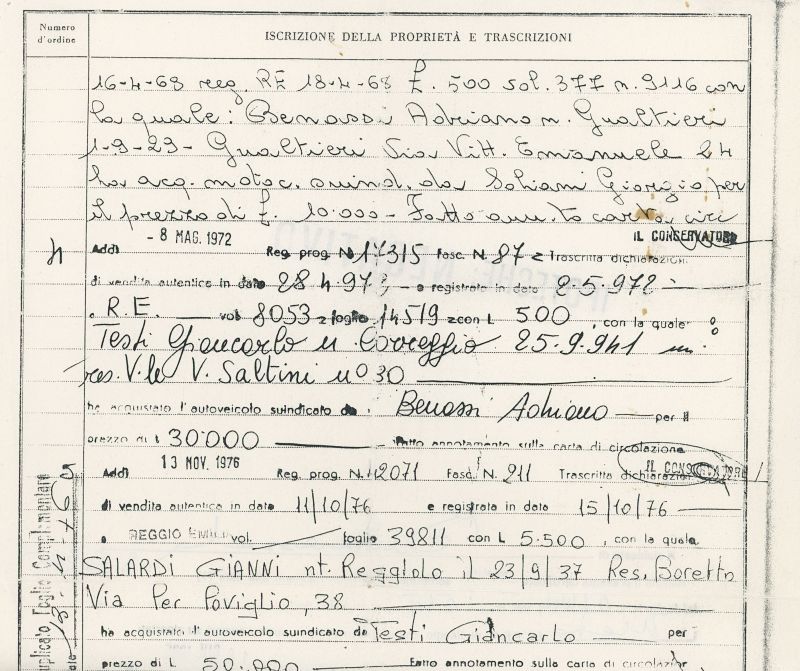 Numero
d'ordine
ISCRIZIONE DELLA PROPRIETÀ E TRASCRIZIONI
16-4-68 reg. RE 18-4-68 £. 500 sol. 377 n. 9116 con
la quale: Benassi Adriano n. Gualtieri
1-9-29- Gualtieri Via Vitt. Emanuele 24
ha acq. motoc. suind. da Soliani Giorgio per
il prezzo di £. 10.000- Fatto annoto carta circ
- 8 MAG. 1972
IL CONSERVATORE
4 Addì Reg. prog. N. 17315 fasc. N. 87 Trascritta dichiarazion
di vendita autentica in data 28 4 972 e registrata in data 2-5-972
R.E. vol 8053 foglio 14519 con L 500, con la quale:
Testi Giancarlo n Correggio 25.9.941
res. V.le V. Saltini n° 30
ha acquistato l'autoveicolo suindicato da Benassi Adriano per il
prezzo di L 30.000 Fatto annotamento sulla carta di circolazione
13 NOV. 1976
IL CONSERVATORE
Addì Reg. prog. N. 12071 Fasc. N. 211 Trascritta dichiarazion
di vendita autentica in data 11/10/76 e registrata in data 15/10/76
a REGGIO EMILIA vol. foglio 39811 con L 5.500, con la quale
SALARDI GIANNI nt. Reggiolo il 23/9/37 Res. Boretto
Via Per Poviglio, 38
ha acquistato l'autoveicolo suindicato da Testi Giancarlo per
prezzo di L 50.000 Fatto annotamento sulla carta di circolazion
Duplicato Foglio Complementare